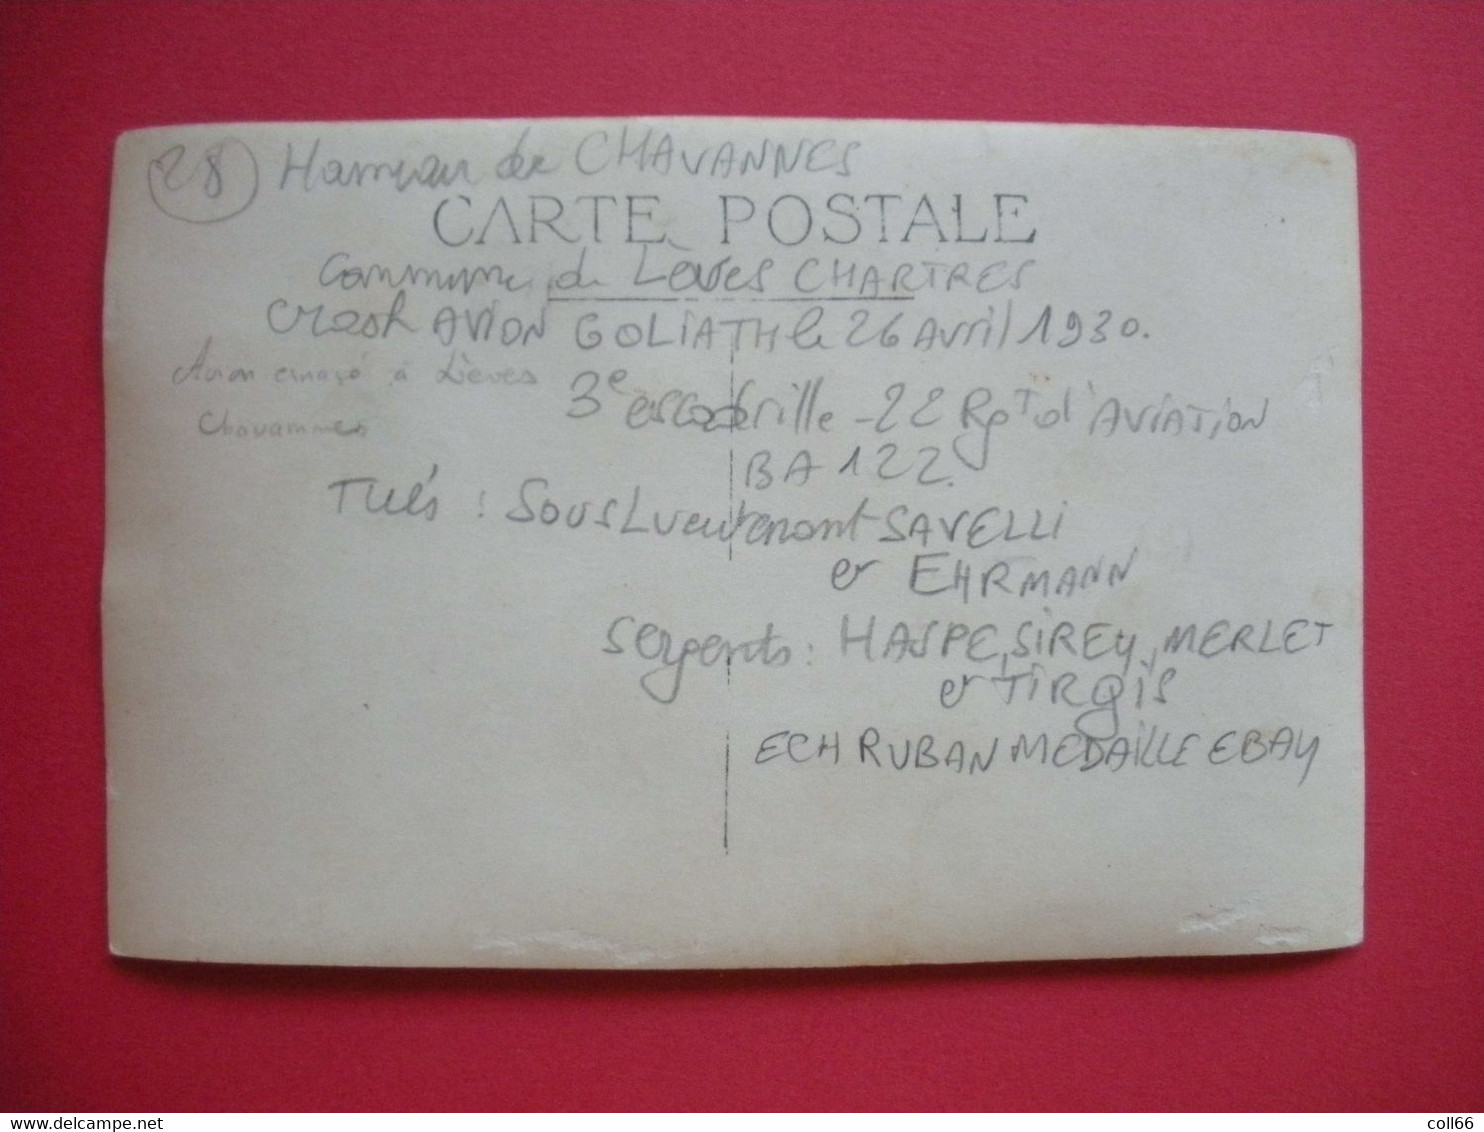 28 Hameau de CHAVANNES
CARTE POSTALE
Commune de Lèves CHARTRES
Crash AVION GOLIATH le 26 Avril 1930.
Avion à Lèves
Chavannes
3e escadrille - 22 Rgt d'AVIATION
BA 122.
Tués : Sous Lieutenant SAVELLI
et EHRMANN
Sergents : HASPE, SIREY, MERLET
et TIRGIS
ECH RUBAN MEDAILLE EBAY
coll66